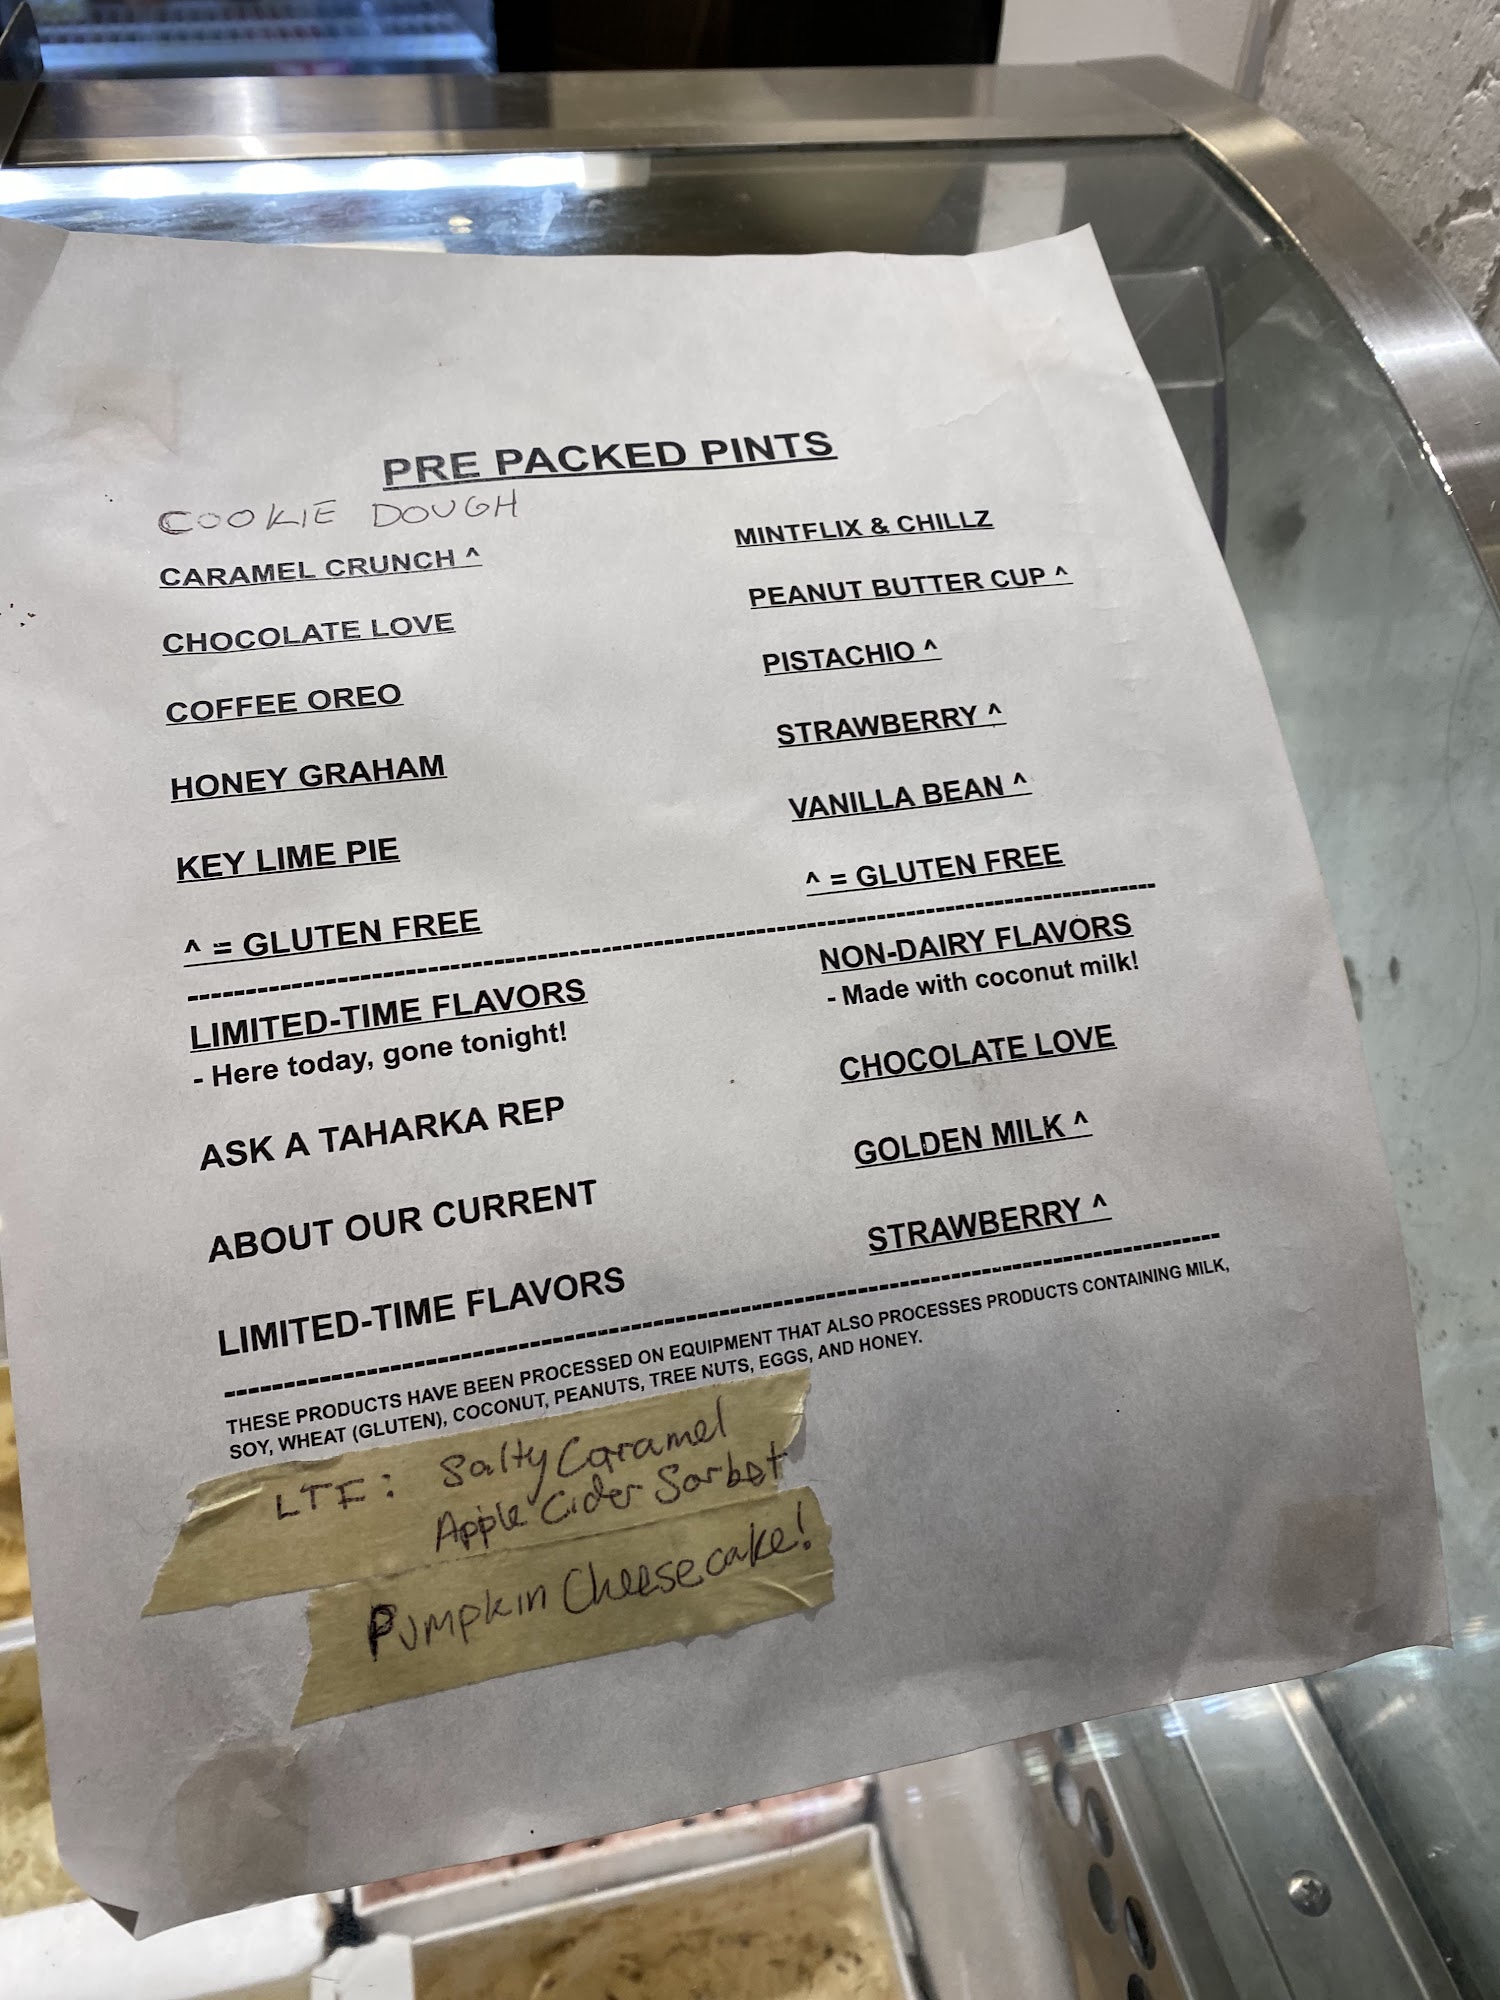 PRE PACKED PINTS
COOKIE DOUGH
CARAMEL CRUNCH ^
CHOCOLATE LOVE
COFFEE OREO
HONEY GRAHAM
KEY LIME PIE
^ = GLUTEN FREE
MINTFLIX & CHILLZ
PEANUT BUTTER CUP ^
PISTACHIO ^
STRAWBERRY ^
VANILLA BEAN ^
^ = GLUTEN FREE
LIMITED-TIME FLAVORS
- Here today, gone tonight!
ASK A TAHARKA REP
ABOUT OUR CURRENT
LIMITED-TIME FLAVORS
NON-DAIRY FLAVORS
- Made with coconut milk!
CHOCOLATE LOVE
GOLDEN MILK ^
STRAWBERRY ^
THESE PRODUCTS HAVE BEEN PROCESSED ON EQUIPMENT THAT ALSO PROCESSES PRODUCTS CONTAINING MILK,
SOY, WHEAT (GLUTEN), COCONUT, PEANUTS, TREE NUTS, EGGS, AND HONEY.
LTF: Salty Caramel
Apple Cider Sorbet
Pumpkin Cheesecake!